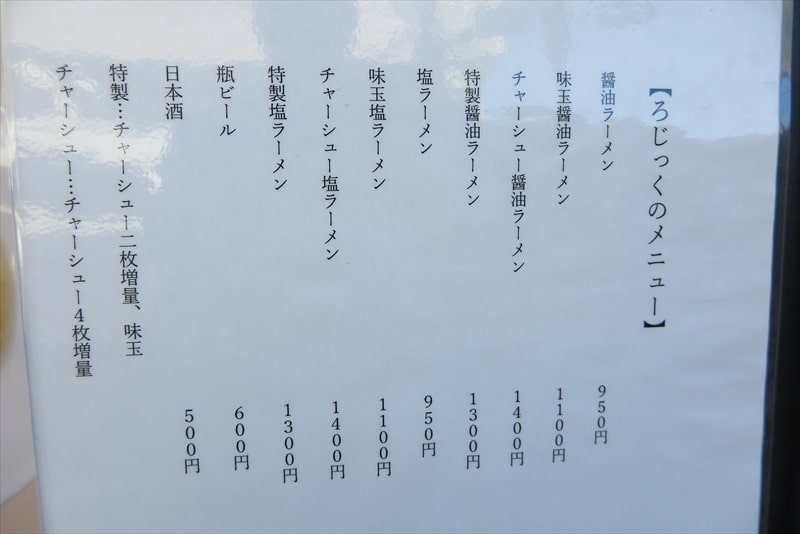 【ろじっくのメニュー】
醤油ラーメン 950円
味玉醤油ラーメン 1100円
チャーシュー醤油ラーメン 1400円
特製醤油ラーメン 1300円
塩ラーメン 950円
味玉塩ラーメン 1100円
チャーシュー塩ラーメン 1400円
特製塩ラーメン 1300円
瓶ビール 600円
日本酒 500円
特製…チャーシュー二枚増量、味玉
チャーシュー…チャーシュー4枚増量